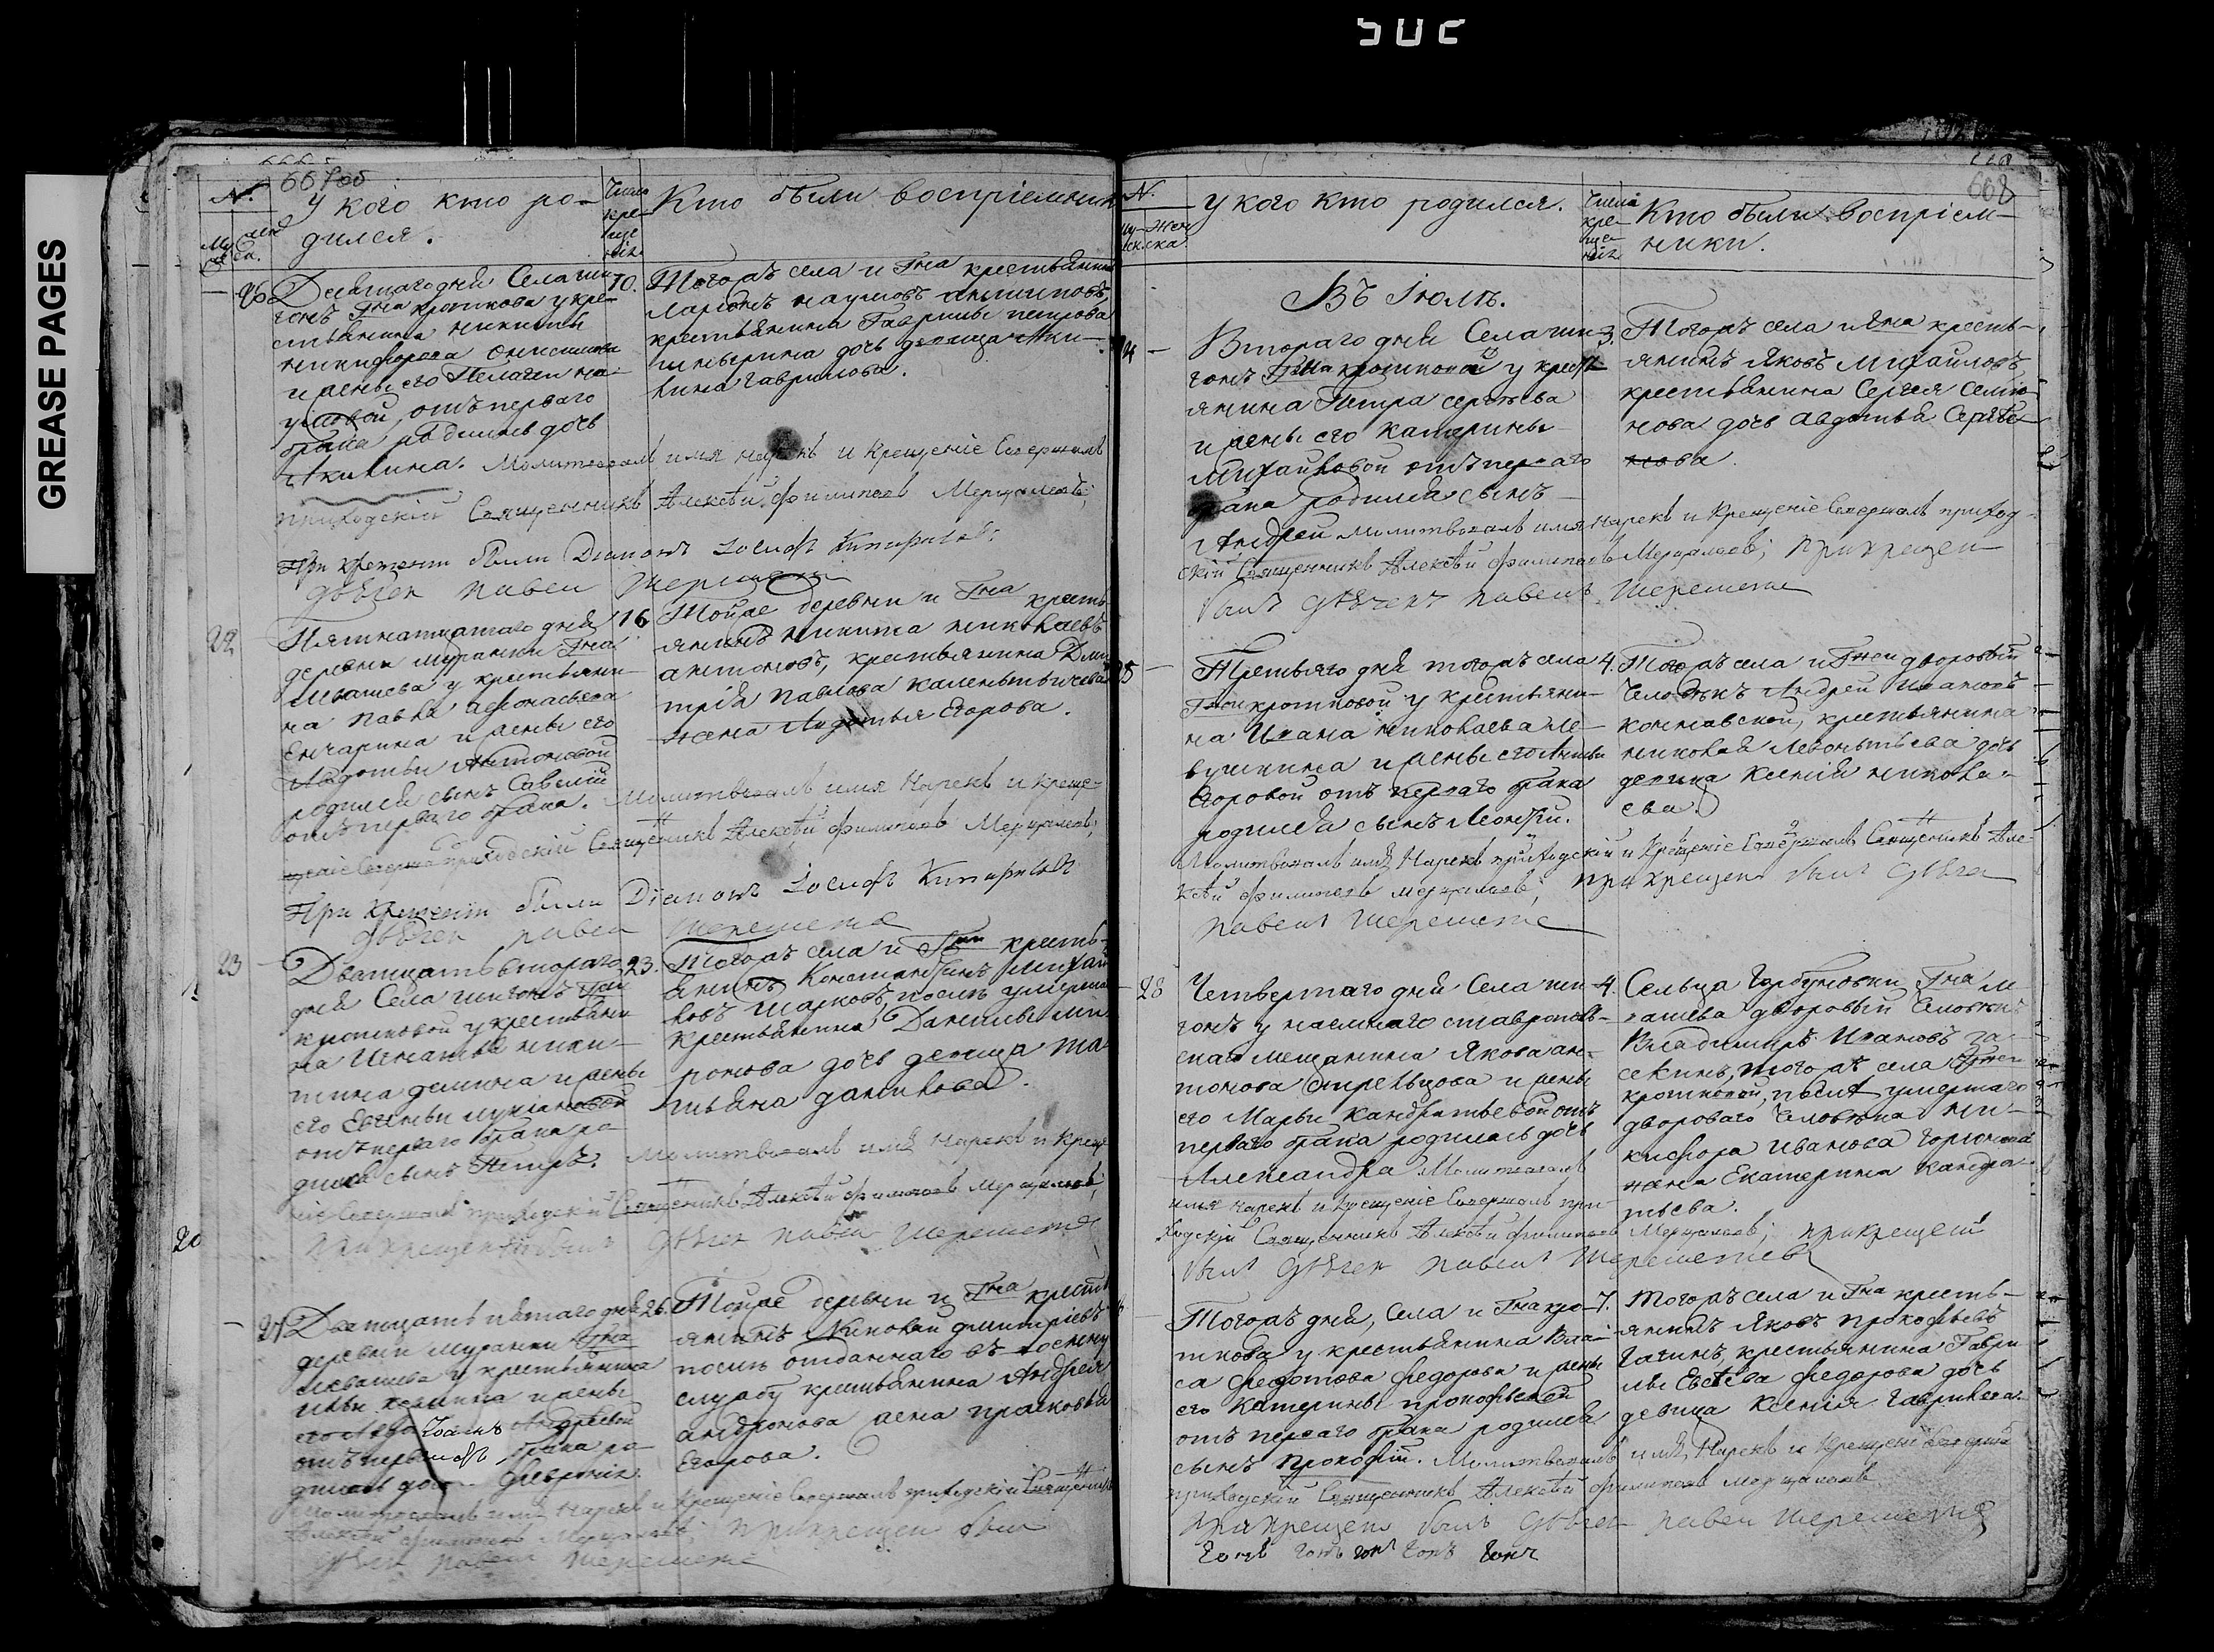 502
GREASE PAGES
667об
№
У кого кто ро-
дился.
Число
кре-
ще
нія
Кто были воспріемник
26
Десятаго дня Села ши
гонъ Гна кроткова у кре-
стьянина никиты
никифорова
и жены его Пелагеи на-
умовой, отъ перваго
брака родилась дочь
Акилина. Молитвовалъ имя нарекъ и Крещеніе Совершалъ
приходскій Священникъ Алексѣй филиповъ Мерцаловъ;
При крещеніи были Діаконъ Іосифъ Кипарисовъ
дьячек павел Шереметев
10.
Тогожъ села и Гна крестьянинъ
Ларіонъ наумовъ
крестьянина Гаврилы петрова
дочь девица Аки-
лина гаврилова.
22
Пятнатцатаго дня
деревни муранки Гна
Ивашева у крестьяни-
на павла афонасьева
Енчарина и жены его
Авдотьи Антоновой
родился сынъ Савелій
отъ перваго брака. Молитвовалъ имя Нарекъ и креще-
приходскій Священникъ Алексѣй филиповъ Мерцаловъ;
При крещеніи были Діаконъ Іосифъ Кипарисовъ
дьячек павел Шереметев
16
Тойже деревни и Гна кресть-
янинъ никита николаевъ
антоновъ, крестьянина Дми
трія павлова
жена Авдотья Егорова.
23
Дватцать втораго
дня Села шигонъ Гжи
кротковой у крестьяни
на Игнатья ники-
тина демина и жены
его Евгеньи лукіановой
отъ перваго брака ро-
дился сынъ Петръ. Молитвовалъ имя Нарекъ и Креще
ніе Совершалъ приходскій Священникъ Алексѣй филиповъ Мерцаловъ;
при крещеніи былъ дьячек павел Шереметев
23.
Тогожъ села и Гжи кресть-
янинъ Константинъ Михай
ловъ послѣ умерша
крестьянина Данилы ми
ронова дочь девица Та
тьяна данилова.
20
27
Дватцать пятаго дня
деревни муранки Гна
ивашева у крестьянина
ильи и жены
Андреевой
отъ перв брака ро-
дилась доч Февронія.
молитвовалъ имя Нарекъ и Крещеніе Совершалъ приходскій Священникъ
Алексѣй филиповъ Мерцаловъ; при крещеніи был
дьячек павел Шереметев
26.
Тойже деревни и Гна кресть
янинъ Николай дмитріевъ
послѣ отданнаго въ военну
службу крестьянина Андрея
андронова жена прасковья
Егорова.
668
№.
Му-
Жен
ска
у кого кто родился.
Числа
кре-
ще-
нія
Кто были воспріем-
ники.
Въ Іюлѣ.
24
Втораго дня Села ши-
гонъ Гжи кротковой у крест-
янина Петра сергѣева
и жены его катерины
Михайловой отъ перваго
брака родился сынъ
Андрей молитвовалъ имя Нарекъ и Крещеніе Совершалъ приход-
скій Священникъ Алексѣй филиповъ Мерцаловъ; при крещен
былъ дьячекъ павелъ Шереметев
3.
Тогожъ села и Гна кресть-
янинъ Яковъ Михайловъ
крестьянина Сергея Семіо
нова дочь Авдотья Сергѣе
25
Третьяго дня тогожъ села
Гжи кротковой у крестьяни-
на Ивана николаева ле-
вушкина и жены его Анны
Егоровой отъ перваго брака
родился сынъ Леонтій.
Молитвовалъ имя Нарекъ приходскій и Крещеніе Совершалъ Священникъ Але-
ксѣй филиповъ мерцаловъ; при крещен был дьяче
павел Шереметев
4.
Тогожъ села и Гжи дворовый
человѣкъ Андрей Ивановъ
крестьянина
николая Леонтьева дочь
девица Ксенія никола-
ева.
28
Четвертаго дня Села ши-
гонъ у наемнаго ставрополь-
скаго мещанина Якова ан-
тонова стрельцова и жены
его Марьи кандратьевой отъ
перваго брака родилась дочь
Александра Молитвовалъ
имя Нарекъ и Крещеніе Совершалъ при-
ходскій Священникъ Алексѣй филиповъ Мерцаловъ; при крещеніи
был дьячек павел Шереметев
4.
Сельца Горбуновки Гна И
вашева дворовый Человѣкъ
Владимиръ Ивановъ га-
секинъ, тогожъ села Гжи
кротковой, послѣ умершаго
двороваго Человѣка ни-
кифора Иванова
жена Екатерина Кандра-
тьева.
Тогожъ дня, Села и Гна кро-
ткова у крестьянина Влаі-
са Федотова Федорова и жены
его Катерины прокофьевой
отъ перваго брака родился
сынъ прокофій. Молитвовалъ имя Нарекъ и Крещеніе Соверша
приходскій Священникъ Алексѣй филиповъ Мерцаловъ
при крещен былъ дьячек павел Шереметев
7.
Тогожъ села и Гна кресть-
янинъ Яковъ прокофьевъ
крестьянина Гаври-
лы Евсѣева Федорова дочь
девица Ксенія Гаврилова.